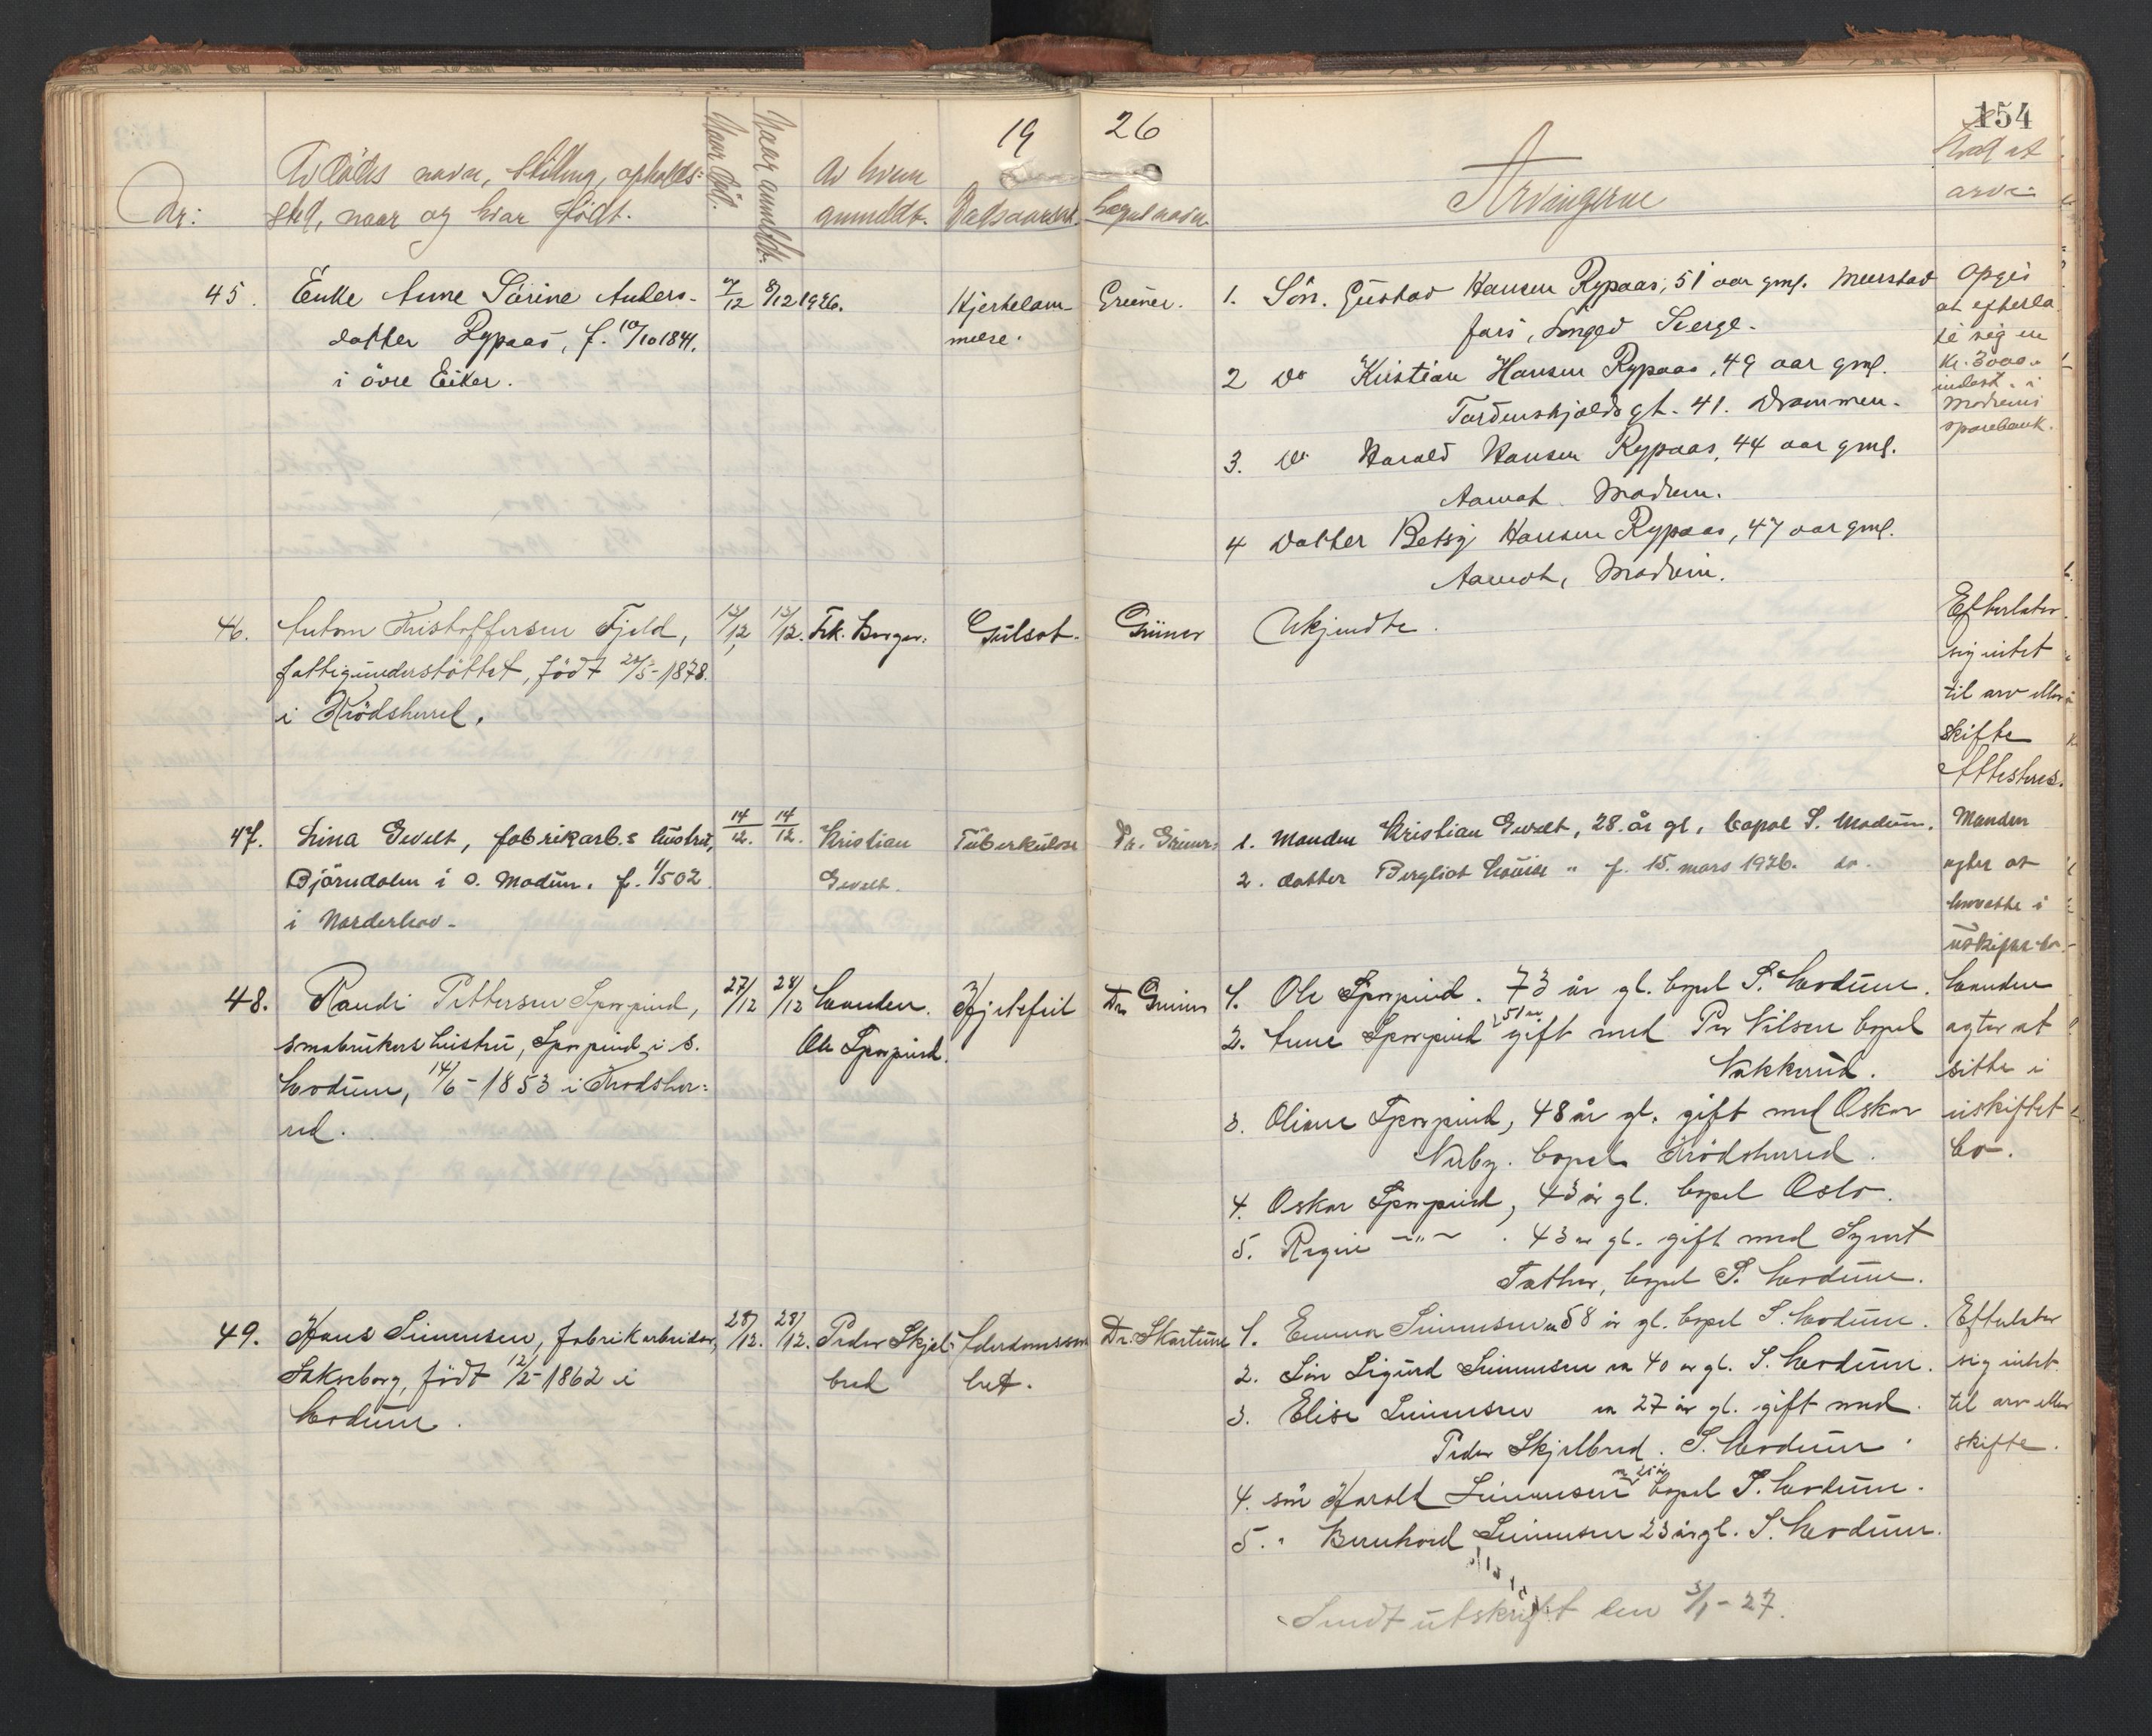 154
19 26
Nr:
navn, stilling, opholds=
sted, naar og hvor födt.
Naar död.
Naar anmeldt.
Av hvem
anmeldt.
Dødsaarsak.
Lægens navn
Arvingerne
arv:
45. Enke Anne Sörine Anders-
datter Rypaas, f. 10/10 1841.
i övre Eiker.
7/12 8/12 1926.
Hjertelam-
melse.
Grüner.
1. Sön. Gustav Hansen Rypaas, 51 aar gml.
2 Do Kristian Hansen Rypaas, 49 aar gml.
Tordenskjolds gt. 41. Drammen.
3. Do Harald Hansen Rypaas, 44 aar gml.
Aamot Modum.
4 Datter Betsy Hansen Rypaas, 47 aar gml.
Aamot, Modum.
Opgis
at efterla
te sig en
kr. 3000.-
indest. i
Modums
sparebank.
46. Antom Kristoffersen Fjeld,
fattigunderstöttet, födt 1878.
i Krödsherred.
13/12 13/12. Frk. Borger.
Gulsot.
Grüner
Ukjendte.
Efterlater
sig intet
til arv eller
skifte
Attesteres.
47. Lina Gevelt, fabrikarb.s hustru,
Björndalen i S. Modum. f. 1/5 02
i Norderhov.
14/12. 14/12.
Kristian
Gevelt.
Tüberkülose
Dr. Grüner
1. Manden Kristian Gevelt, 28 år gl, bopæl S. Modum.
2. datter Bergliot Louise " f. 15. mars 1926. do.
Manden
agter at
hensitte i
uskiftet bo.
48. Randi Pettersen
smabrukers hustru, i S.
Modum, 14/6-1853 i Krödsher=
red.
27/12 28/12 Manden.
Ole
Hjertefeil
Dr. Grüner
1. Ole 73 år gl. bopel S. Modum.
2. Anne 51 år gift med Per Nilsen bopel
Nakkerud.
3. Oline 48 år gl. gift med Oskar
bopel Krödsherred.
4. Oskar 43 år gl. bopel Oslo.
5. Regine -"- . 43 år gl. gift med Syvert
bopel S. Modum.
Manden
agter at
sitte i
uiskiftet
bo.
49. Hans Simensen, fabrikarbeider,
Saksborg, födt 12/5-1862 i
Modum.
28/12. 28/12. Peder Skjel-
bred
Alderdomssvak
het.
Dr. Skartum
1. Emma Simensen 58 år gl. bopel S. Modum.
2. Sön Sigurd Simensen 40 år gl. S. Modum.
3. Elise Simensen 27 år gl. gift med
Peder Skjelbred. S. Modum.
4. sön Harald Simensen 25 år bopel S. Modum.
5. " Bernhard Simensen 23 år gl. S. Modum.
Efterlater
sig intet
til arv eller
skifte.
Sendt utskrift den 3/1-27.